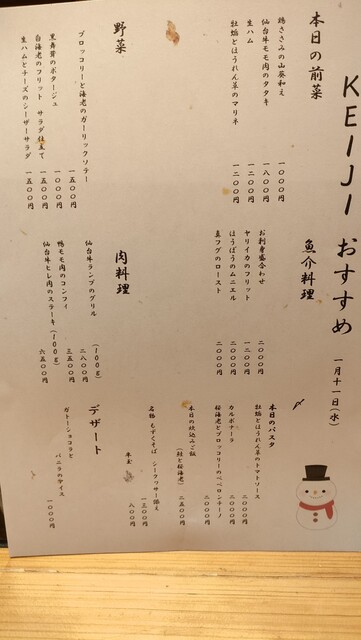 KEIJI おすすめ 一月十一日(水)
本日の前菜
鶏ささみの山葵和え 一〇〇〇円
仙台牛モモ肉のタタキ 一八〇〇円
生ハム 一二〇〇円
牡蠣とほうれん草のマリネ 一二〇〇円
野菜
ブロッコリーと海老のガーリックソテー 一五〇〇円
里芋のポタージュ 一〇〇〇円
白海老のフリット サラダ仕立て 一五〇〇円
生ハムとチーズのシーザーサラダ 一五〇〇円
魚介料理
お刺身盛合わせ 二〇〇〇円
ヤリイカのフリット 一二〇〇円
ほうぼうのムニエル 二〇〇〇円
真フグのロースト 二〇〇〇円
肉料理
仙台牛ランプのグリル (100g) 二八〇〇円
鴨モモ肉のコンフィ 三五〇〇円
仙台牛ヒレ肉のステーキ (100g) 六五〇〇円
本日のパスタ
牡蠣とほうれん草のトマトソース 二〇〇〇円
カルボナーラ 二〇〇〇円
桜海老とブロッコリーのペペロンチーノ 二〇〇〇円
本日の炊込みご飯 (鮭と桜海老) 二五〇〇円
名物 もずくそば シークヮサー添え 一三〇〇円
半玉 八〇〇円
デザート
ガトーショコラと
バニラのアイス 一〇〇〇円